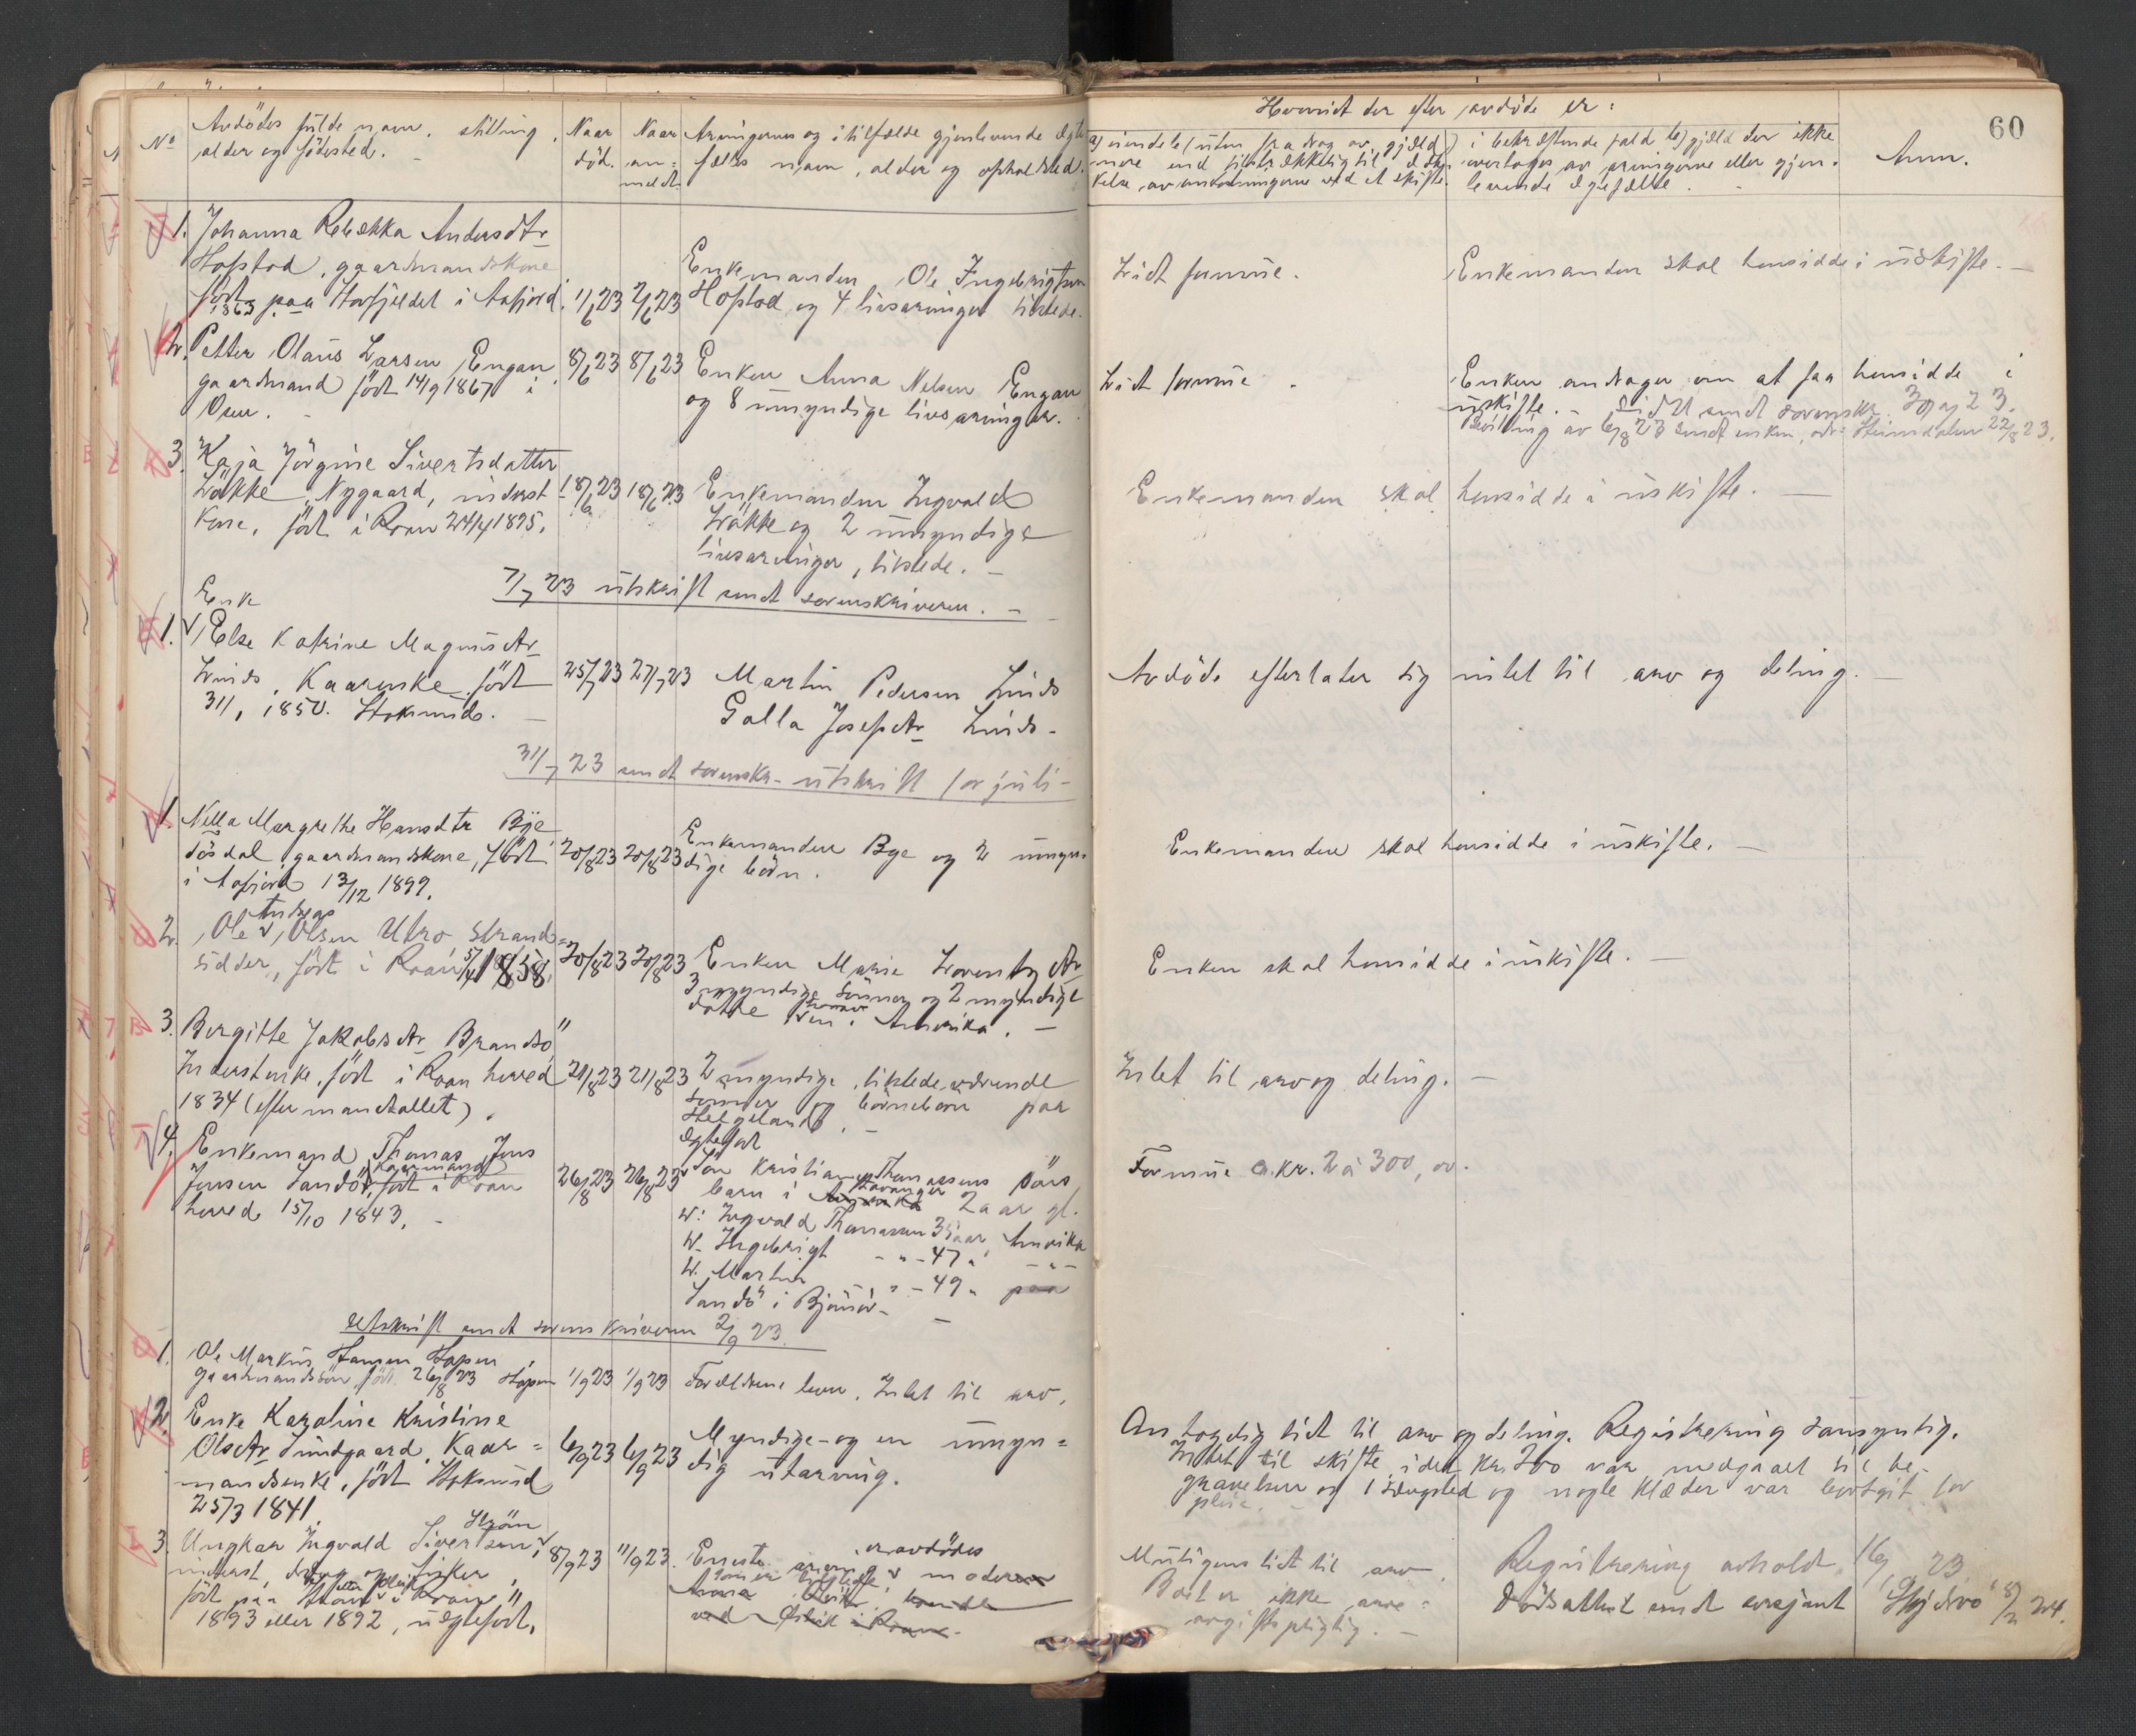 60
No
Avdödes fulde navn, stilling,
alder og födested.
Naar
död.
Naar
an=
meldt
Arvingernes og i tilfælde gjenlevende ægte
fælles navn, alder og opholdsted.
Hvorvidt der efter avdöde er:
a) eiendele (uten fradrag av gjæld)
mere end tilstrækkelig til dæk-
kelse av omkostningerne ved et skifte.
b) i bekræftende fald gjæld der ikke
overtages av arvingerne eller gjen-
levende ægtefælle.
Anm.
1. Johanna Rebekka Andersdtr
Hopstad, gaardmandskone
födt 1863 paa Storfjeldet i Aafjord.
1/6 23 2/6 23
Enkemanden Ole Ingebrigtsen
Hopstad og 4 livsarvinger tilstede.
Lidt formue.
Enkemanden skal hensidde i uskifte.
2. Petter Olaus Larsen Engan
gaardmand födt 14/9 1867 i
Osen.
8/6 23 8/6 23
Enken Anna Nelsen Engan
og 8 umyndige livsarvinger.
Lidt formue.
Enken andrager om at faa hensidde i
uskifte. - sendt sorenskr. 23.
Bevilling av 6/8 23 sendt enken, 22/8 23.
3. Kaja Jörgine Sivertsdatter
Løkke, Nygaard, inderst
kone, födt i Roan 24/4 1895.
18/6 23 18/6 23
Enkemanden Ingvald
Løkke og 2 umyndige
livsarvinger, tilstede.
Enkemanden skal hensidde i uskifte.
7/7 23 utskrift sendt sorenskriveren.
Enk
1. Else Katrine Magnusdtr
Linds, Kaarenke, födt
31/1 1850. Stoksund.
25/7 23 27/7 23
Martin Pedersen Linds
Golla Josefdtr Linds.
Avdöde efterlater sig intet til arv og deling.
31/7 23 sendt sorenskr. utskrift for juli-
1. Nella Margrethe Hansdtr Bye
dösdal, gaardmandskone, födt
i Aafjord 13/12 1899.
20/8 23 20/8 23
Enkemanden Bye og 2 umyn-
dige börn.
Enkemanden skal hensidde i uskifte.
2. Ole Andreas Olsen Utro strand=
sidder, födt i Roan 5/4 1858.
20/8 23 20/8 23
Enken Marie Lorentsdtr
3 myndige sönner og 2 myndige
dötre Amerika.
Enken skal hensidde i uskifte.
3. Bergitte Jakobsdtr Brandsö
Inderstenke, födt i Roan herred
1834 (efter mandtallet).
21/8 23 21/8 23
2 myndige, tilstedeværende
sönner og börnebörn paa
Helgeland.
Intet til arv og deling.
4. Enkemand Thomas Jens
Jensen Sandö, kaarmand, födt i Roan
herred 15/10 1843.
26/8 23 26/8 23
Ægtefödt
sön Kristian Thomassens pörs
barn i Amerika Stavanger 2 aar gl.
W: Ingvald Thomassen 35 aar, Amerika
W. Ingebrigt - " - 47 " - " -
W. Martin - " - 49 " paa
Sandö i Bjørnör.
Formue ca. kr. 2 à 300,00.
Utskrift sendt sorenskriveren 2/9 23.
1. Ole Markus Hansen Hopen,
gaardmandssön, födt 26/8 23 Hopen
1/9 23 1/9 23
Forældrene lever. Intet til arv.
2. Enke Karoline Kristine
Olsdtr Sundgaard, Kaar=
mandsenke, födt Stoksund
25/3 1841.
6/9 23 6/9 23
Myndige- og en umyn=
dig utarving.
Antagelig lidt til arv og deling. Registrering sansynlig.
Intet til skifte idet kr. 200 var medgaaet til be-
gravelsen og 1 sengsted og nogle klæder var bortgit for
pleie.
3. Ungkar Ingvald Sivertsen Ström,
inderst, dreng og fisker,
födt paa i Roan
1893 eller 1892, uægtefödt.
8/9 23 11/9 23.
Eneste arving er avdödes
som er tilstede, moderen
Anna
ved i Roan.
Muligens lidt til arv.
Boet er ikke arve=
avgiftspligtig.
Registrering avholdt 16/9 23
Dödsattest sendt sersjant Skjervö 8/2 24.